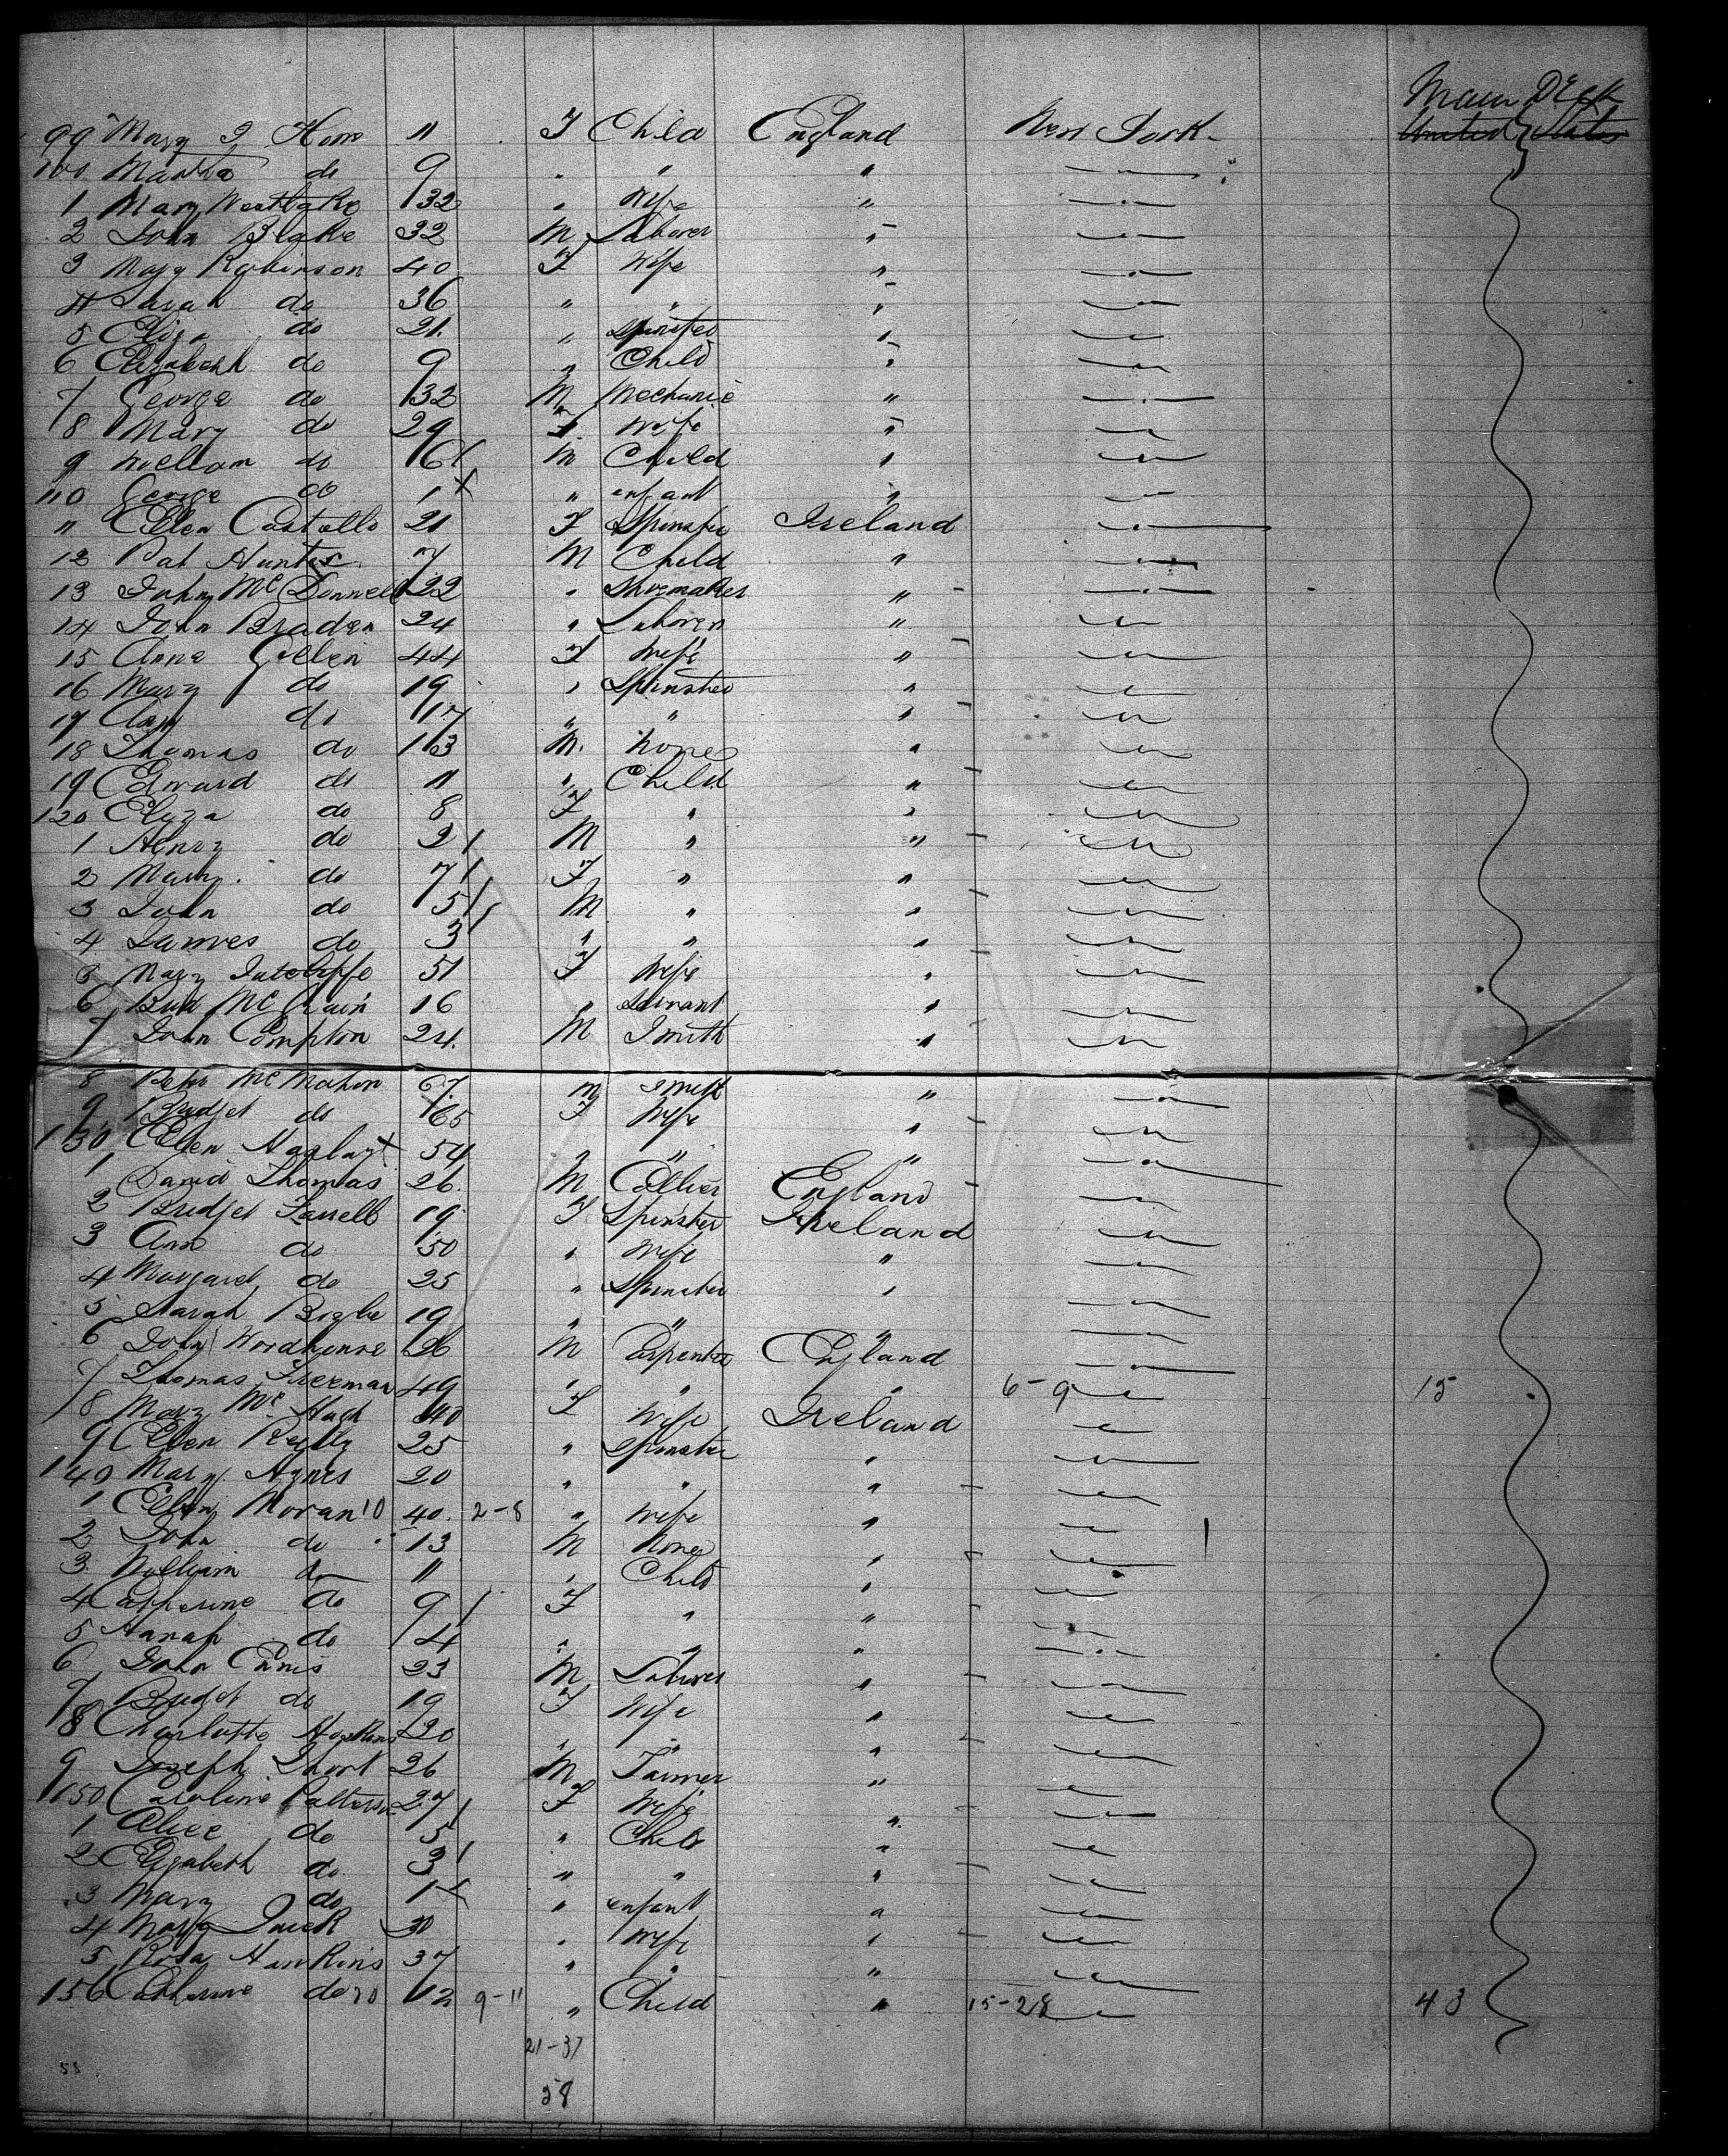 Main Deck
99 Mary J Horn 11 F Child England New York United States
100 Martha do 9 " " " "
1 Mary Westlake 32 " Wife " "
2 John Blake 32 M Laborer " "
3 Mary Robinson 40 F Wife " "
4 Sarah do 36 " " " "
5 Eliza do 21 " Spinster " "
6 Elizabeth do 9 " Child " "
7 George do 32 M Mechanic " "
8 Mary do 29 F Wife " "
9 William do 6 M Child " "
110 George do 1 " infant " "
11 Ellen Costello 21 F Spinster Ireland "
12 Pat Hunter 7 M Child " "
13 John McDonnell 22 " Shoemaker " "
14 John Braden 24 " Laborer " "
15 Anne Gillen 44 F Wife " "
16 Mary do 19 " Spinster " "
17 Ann do 17 " " " "
18 Thomas do 13 M. None " "
19 Edward do 11 " Child " "
120 Eliza do 8 F " " "
1 Henry do 2 M " " "
2 Mary do 7 F " " "
3 John do 5 M " " "
4 James do 3 " " " "
5 Mary Sutcliffe 51 F Wife " "
6 McCrain 16 " Servant " "
7 John Compton 24 M Smith " "
8 McMahon 67 M Smith " "
9 Bridget do 65 F Wife " "
130 Ellen 54 " " " "
1 David Thomas 26 M Collier England "
2 Bridget Farrell 19 F Spinster Ireland "
3 Ann do 50 " Wife " "
4 Margaret do 25 " Spinster " "
5 Sarah 19 " " " "
6 John Woodhouse 26 M Carpenter England "
7 Thomas Freeman 49 " " " 6-9 " 15
8 Mary McHugh 40 F Wife Ireland "
9 Ellen Reilly 25 " Spinster " "
140 Mary Agnes 20 " " " "
1 Ellen Moran 10 40 2-8 " Wife " "
2 John do 13 M None " "
3 William do 11 " Child " "
4 Catherine do 9 F " " "
5 Hanah do 4 " " " "
6 John Ennis 23 M Laborer " "
7 Bridget do 19 F Wife " "
8 Charlotte Hopkins 20 " " " "
9 Joseph Short 26 M Farmer " "
150 Caroline Patterson 27 F Wife " "
1 Alice do 5 " Child " "
2 Elizabeth do 3 " " " "
3 Mary do 1 " infant " "
4 Mary Quick 30 " Wife " "
5 Rosa Hawkins 37 " " " "
156 Catherine do 20 12 9-11 " Child " 15-28 " 43
21-37
58
55